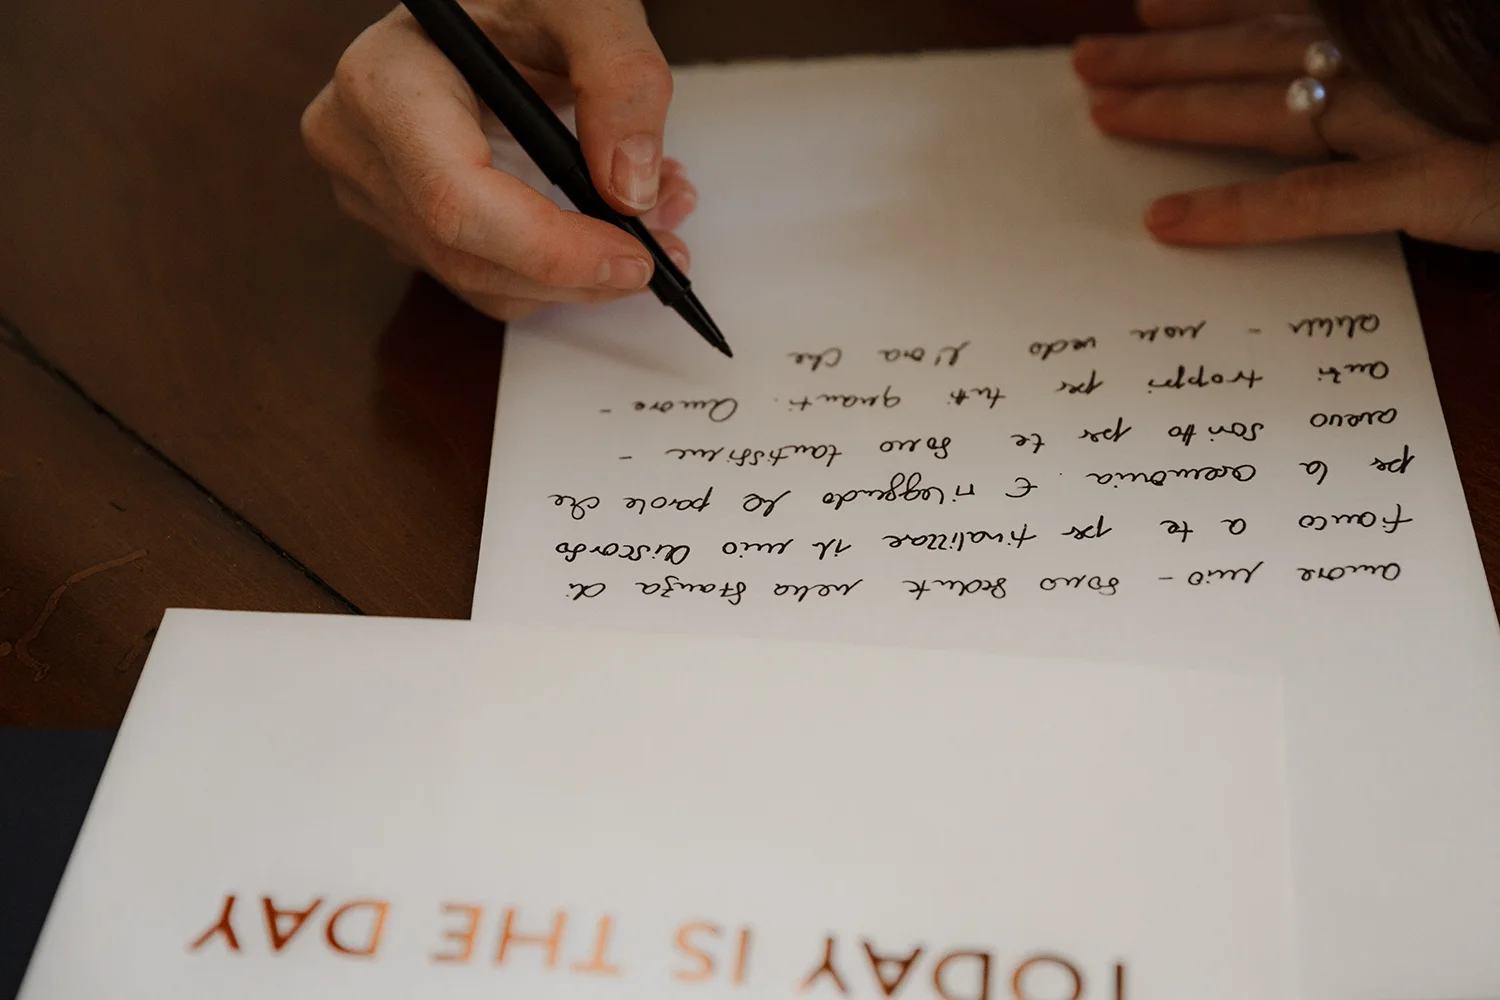 TODAY IS THE DAY
amore mio - sono seduta nella stanza di
fianco a te per finalizzare il mio discorso
per la cerimonia. E rileggendo le parole che
avevo scritto per te sono tantissime -
anzi troppi per tutti quanti. Amore -
- non vedo l'ora che